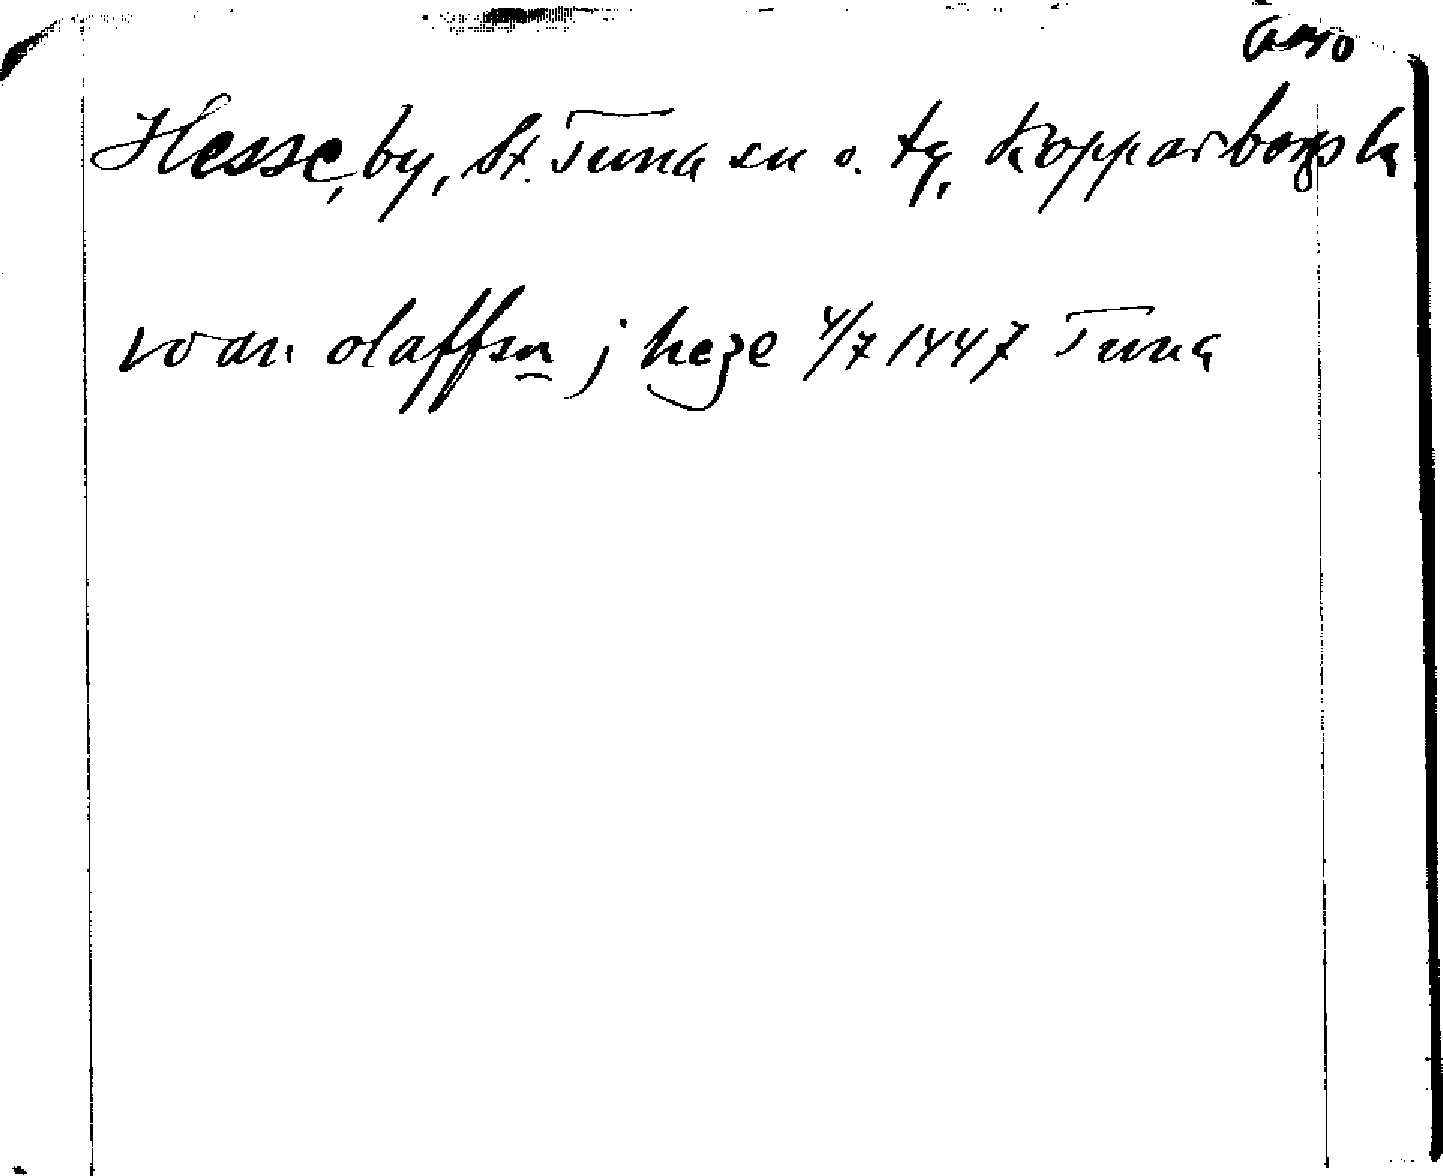 Hesse, by, St. Tuna sn o. tg, Kopparbergs l.
olaffson j heze 4/7 1447 Tuna